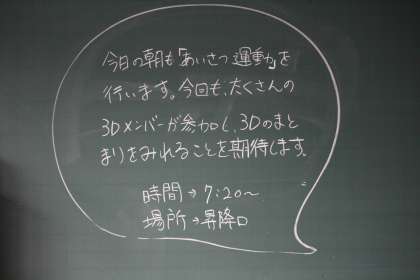 今日の朝も「あいさつ運動」を
行います。今回も、たくさんの
3Dメンバーが参加し、3Dのまと
まりをみれることを期待します。
時間→7:20〜
場所→昇降口